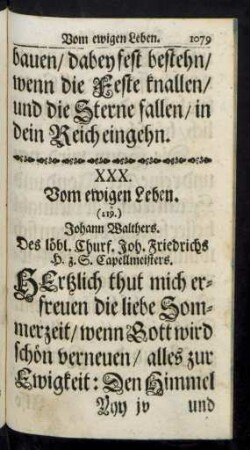 Vom ewigen Leben. 1079
bauen/ dabey fest bestehn/
wenn die Feste knallen/
und die Sterne fallen/ in
dein Reich eingehn.
XXX.
Vom ewigen Leben.
(219.)
Johann Walthers.
Des löbl. Churf. Joh. Friedrichs
H. z. S. Capellmeisters.
HErtzlich thut mich er-
freuen die liebe Som-
merzeit/ wenn Gott wird
schön verneuen/ alles zur
Ewigkeit: Den Himmel
Yyy jv und